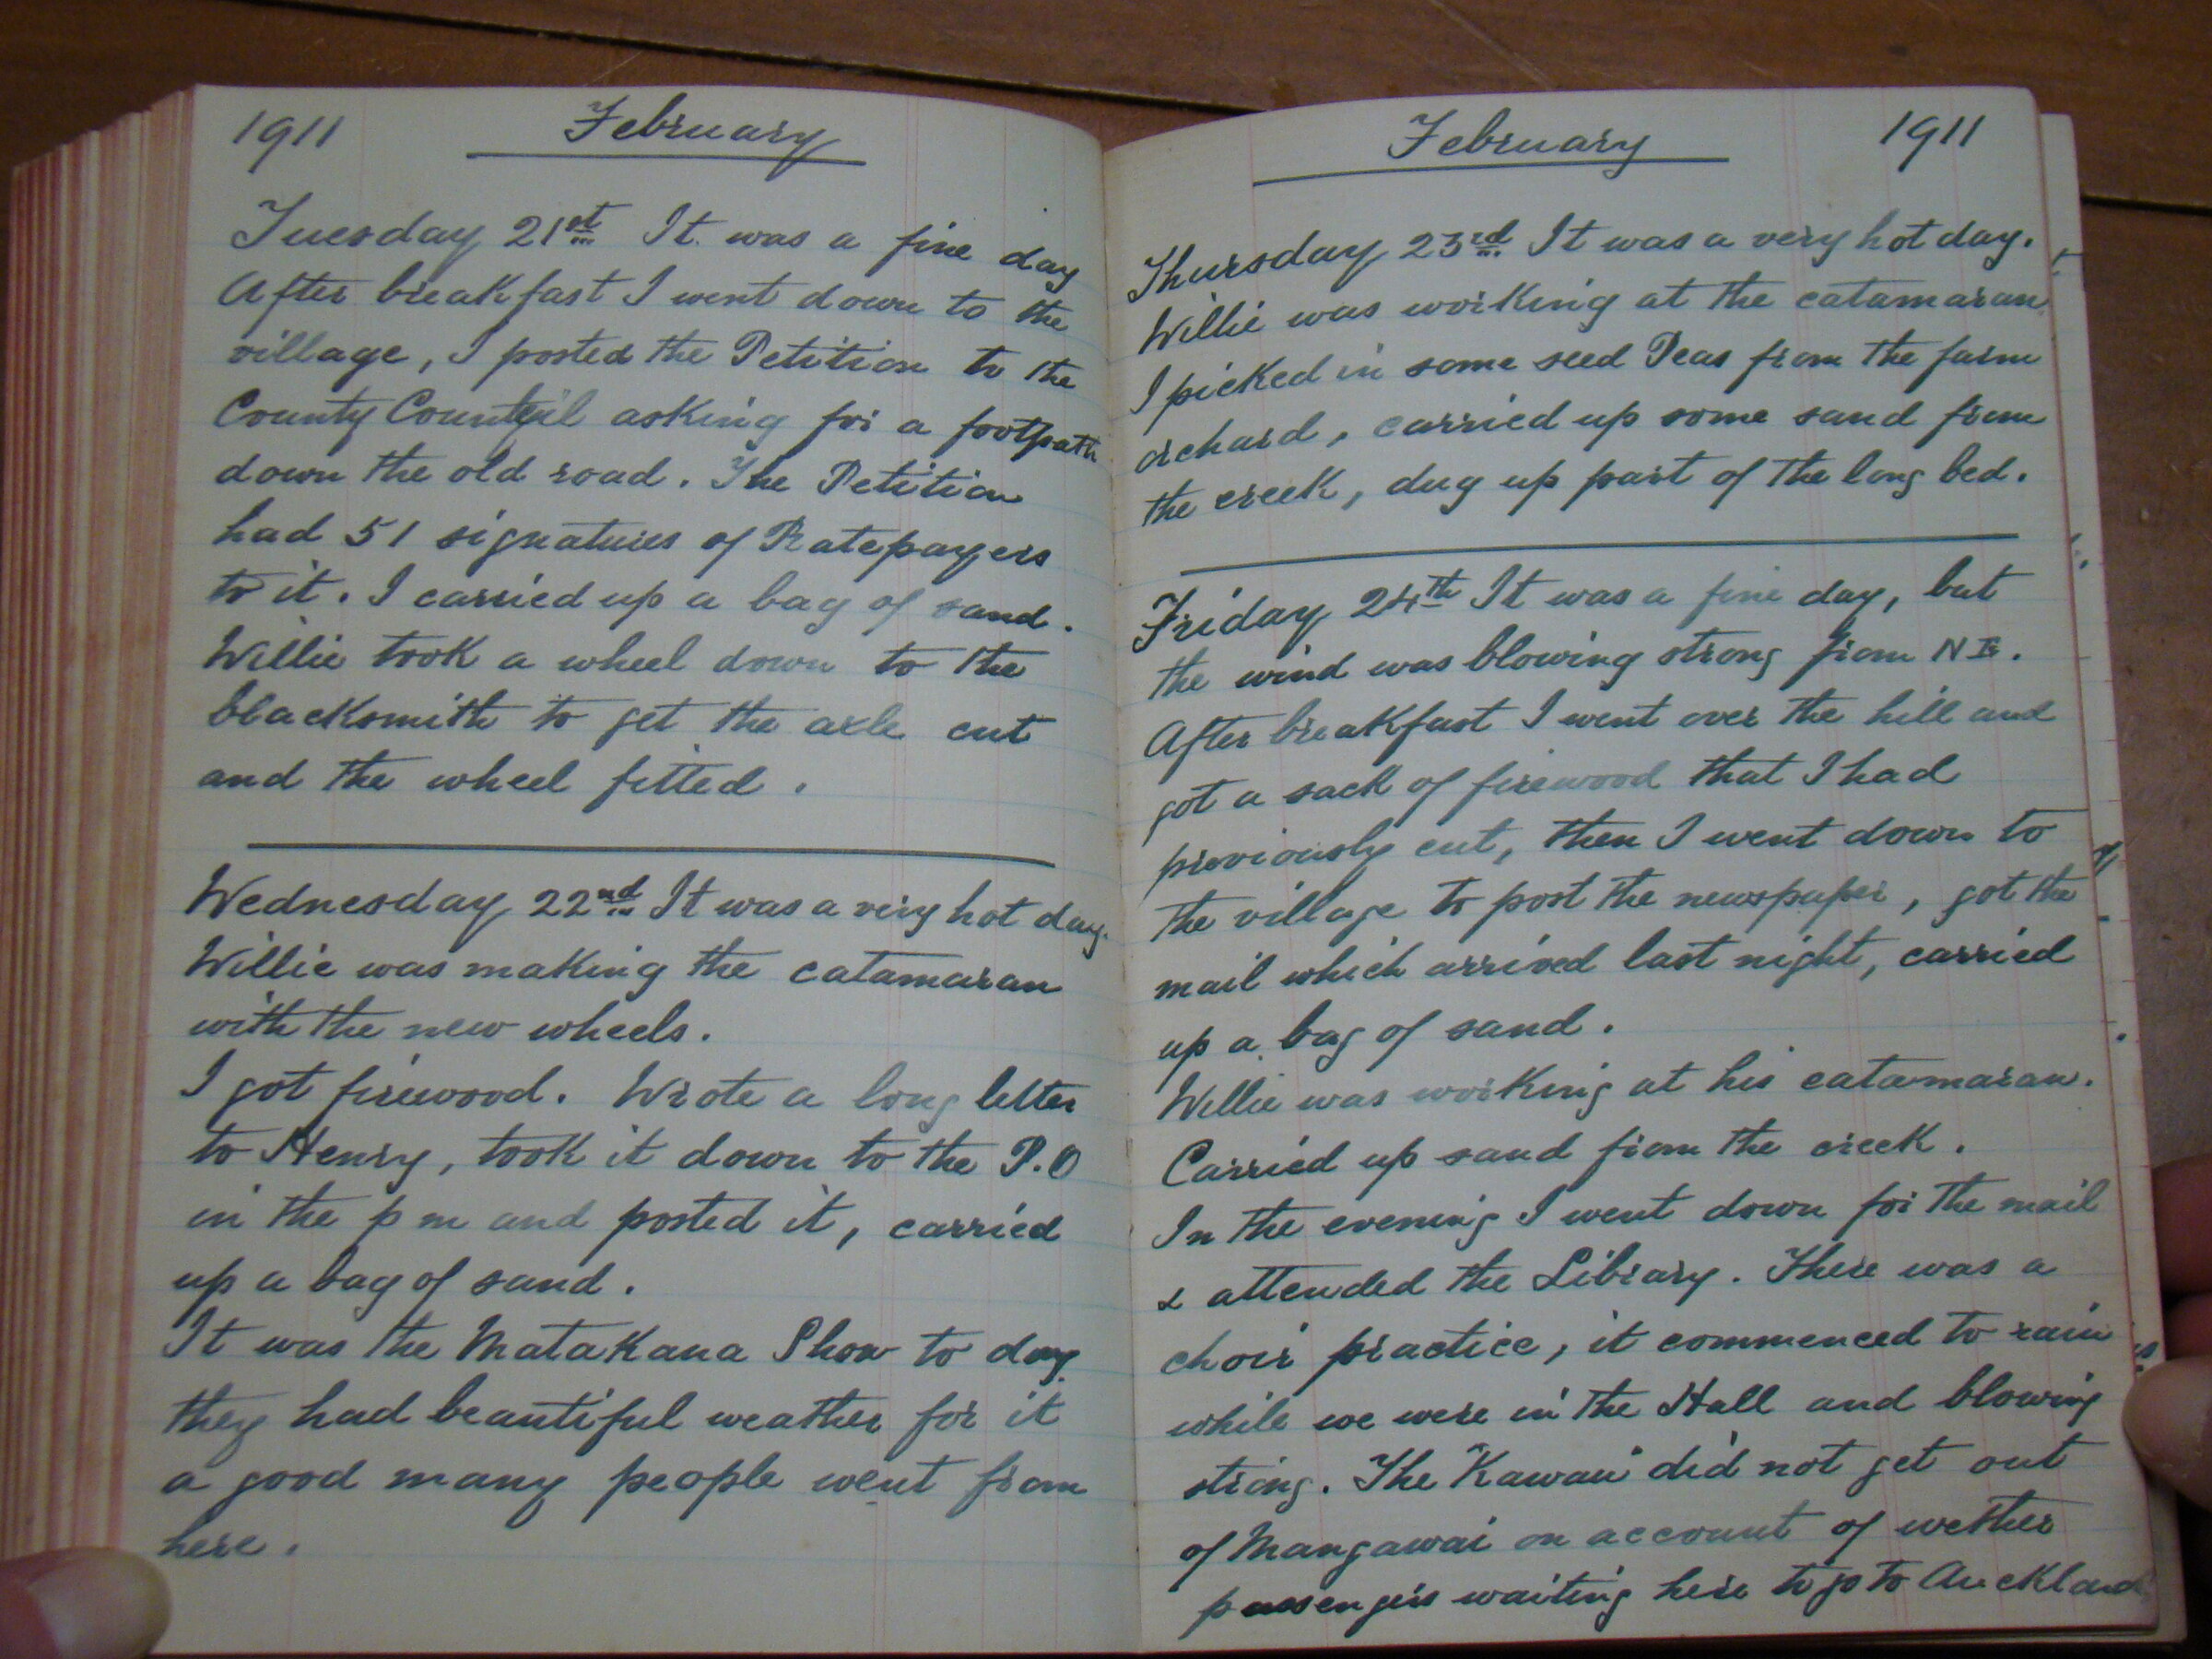 1911 February
Tuesday 21st It was a fine day
After breakfast I went down to the
village, I posted the Petition to the
County Council asking for a footpath
down the old road. The Petition
had 51 signatures of Ratepayers
to it. I carried up a bag of sand.
Willie took a wheel down to the
blacksmith to get the axle cut
and the wheel fitted.
Wednesday 22nd It was a very hot day.
Willie was making the catamaran
with the new wheels.
I got firewood. Wrote a long letter
to Henry, took it down to the P.O
in the p m and posted it, carried
up a bag of sand.
It was the Matakana Show to day.
they had beautiful weather for it
a good many people went from
here.
February 1911
Thursday 23rd It was a very hot day.
Willie was working at the catamaran
I picked in some seed Peas from the farm
orchard, carried up some sand from
the creek, dug up part of the long bed.
Friday 24th It was a fine day, but
the wind was blowing strong from N E.
After breakfast I went over the hill and
got a sack of firewood that I had
previously cut, then I went down to
the village to post the newspaper, got the
mail which arrived last night, carried
up a bag of sand.
Willie was working at his catamaran.
Carried up sand from the creek.
In the evening I went down for the mail
& attended the Library. There was a
choir practice, it commenced to rain
while we were in the Hall and blowing
strong. The "Kawau" did not get out
of Mangawai on account of wether
passengers waiting here to go to Auckland